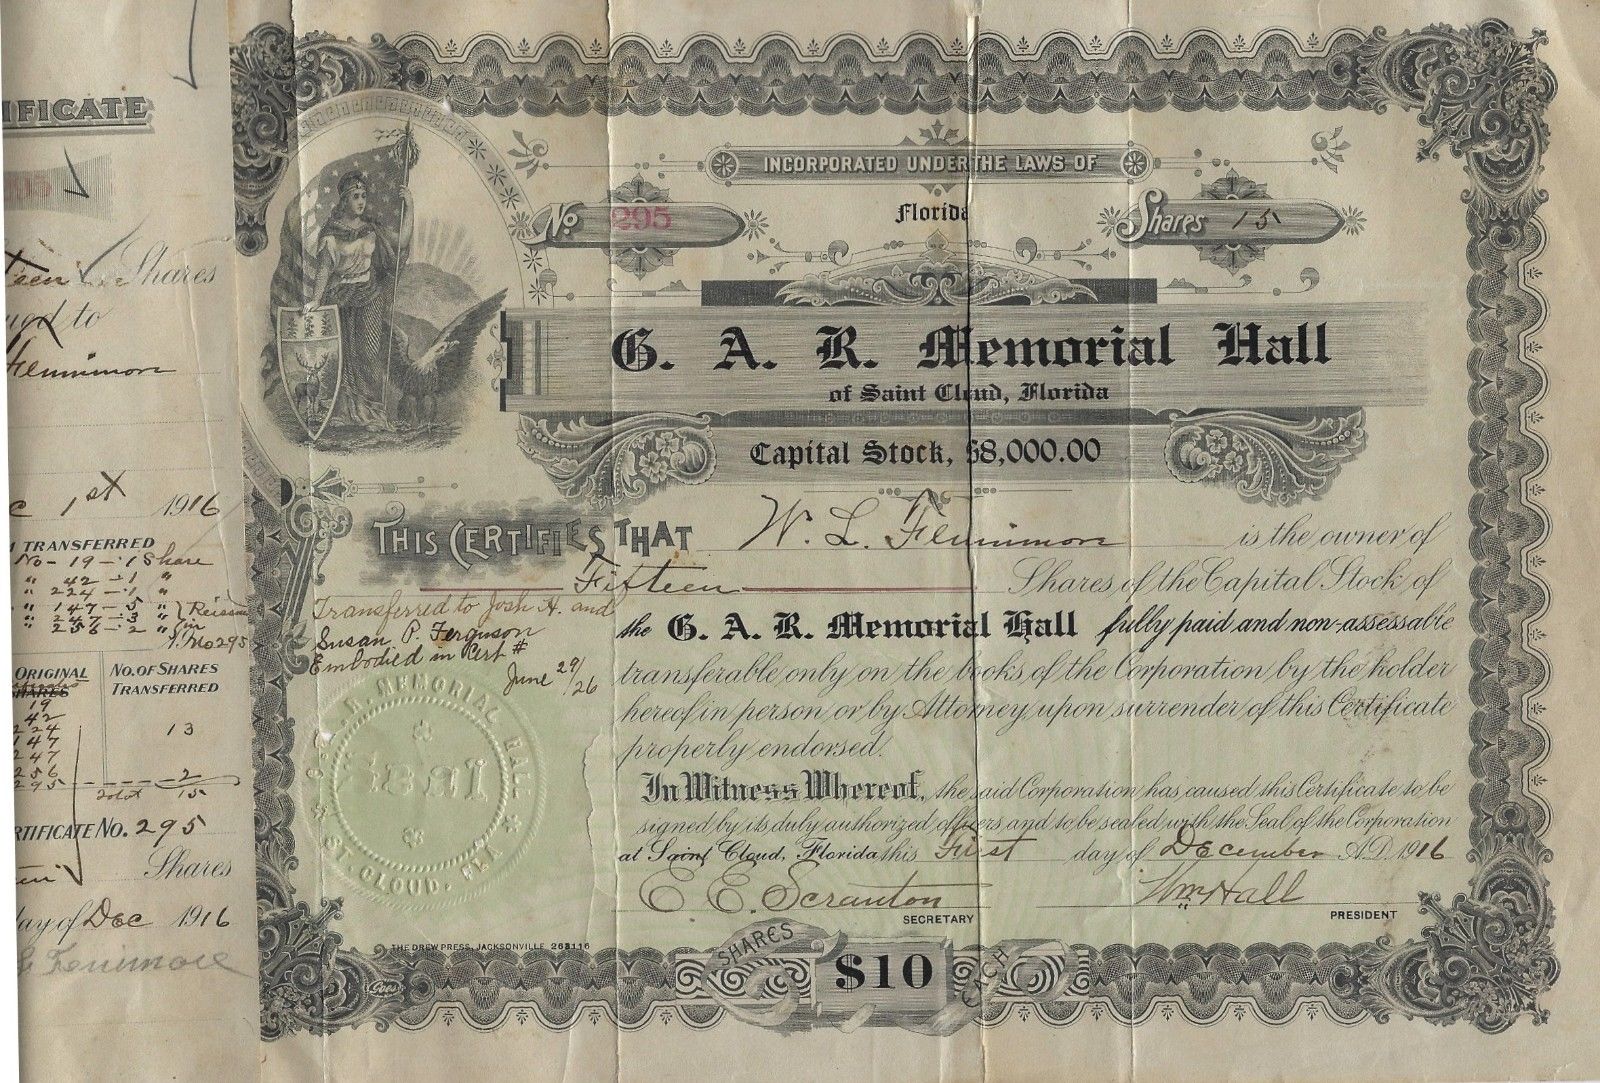 IFICATE
295
teen Shares
to
Flenimore
1st 1916
TRANSFERRED
No - 19 - 1 Share
" 42 - 1 "
" 224 - 1 "
" 147 - 5 "
" 247 - 3 "
" 256 - 2 "
in
No 295
ORIGINAL NO. OF SHARES
SHARES TRANSFERRED
19
42
224
147 13
247
256 2
295 Total 15
RTIFICATE NO. 295
Shares
day of Dec 1916
Fenimore
INCORPORATED UNDER THE LAWS OF
Florida
No. 295
Shares 15
G. A. R. Memorial Hall
of Saint Cloud, Florida
Capital Stock, $8,000.00
THIS CERTIFIES THAT W. L. Flenimore is the owner of
Fifteen Shares of the Capital Stock of
the G. A. R. Memorial Hall fully paid and non-assessable
transferable only on the books of the Corporation by the holder
hereof in person or by Attorney, upon surrender of this Certificate
properly endorsed.
Transferred to Josh H. and
Susan P. Ferguson
Embodied in Cert #
June 29/26
In Witness Whereof, the said Corporation has caused this Certificate to be
signed by its duly authorized officers and to be sealed with the Seal of the Corporation
at Saint Cloud, Florida this First day of December A.D. 1916
C. E. Scranton Wm Hall
SECRETARY PRESIDENT
G. A. R. MEMORIAL HALL
Seal
ST. CLOUD. FLA
THE DREW PRESS, JACKSONVILLE 263116
Goes
SHARES $10 EACH